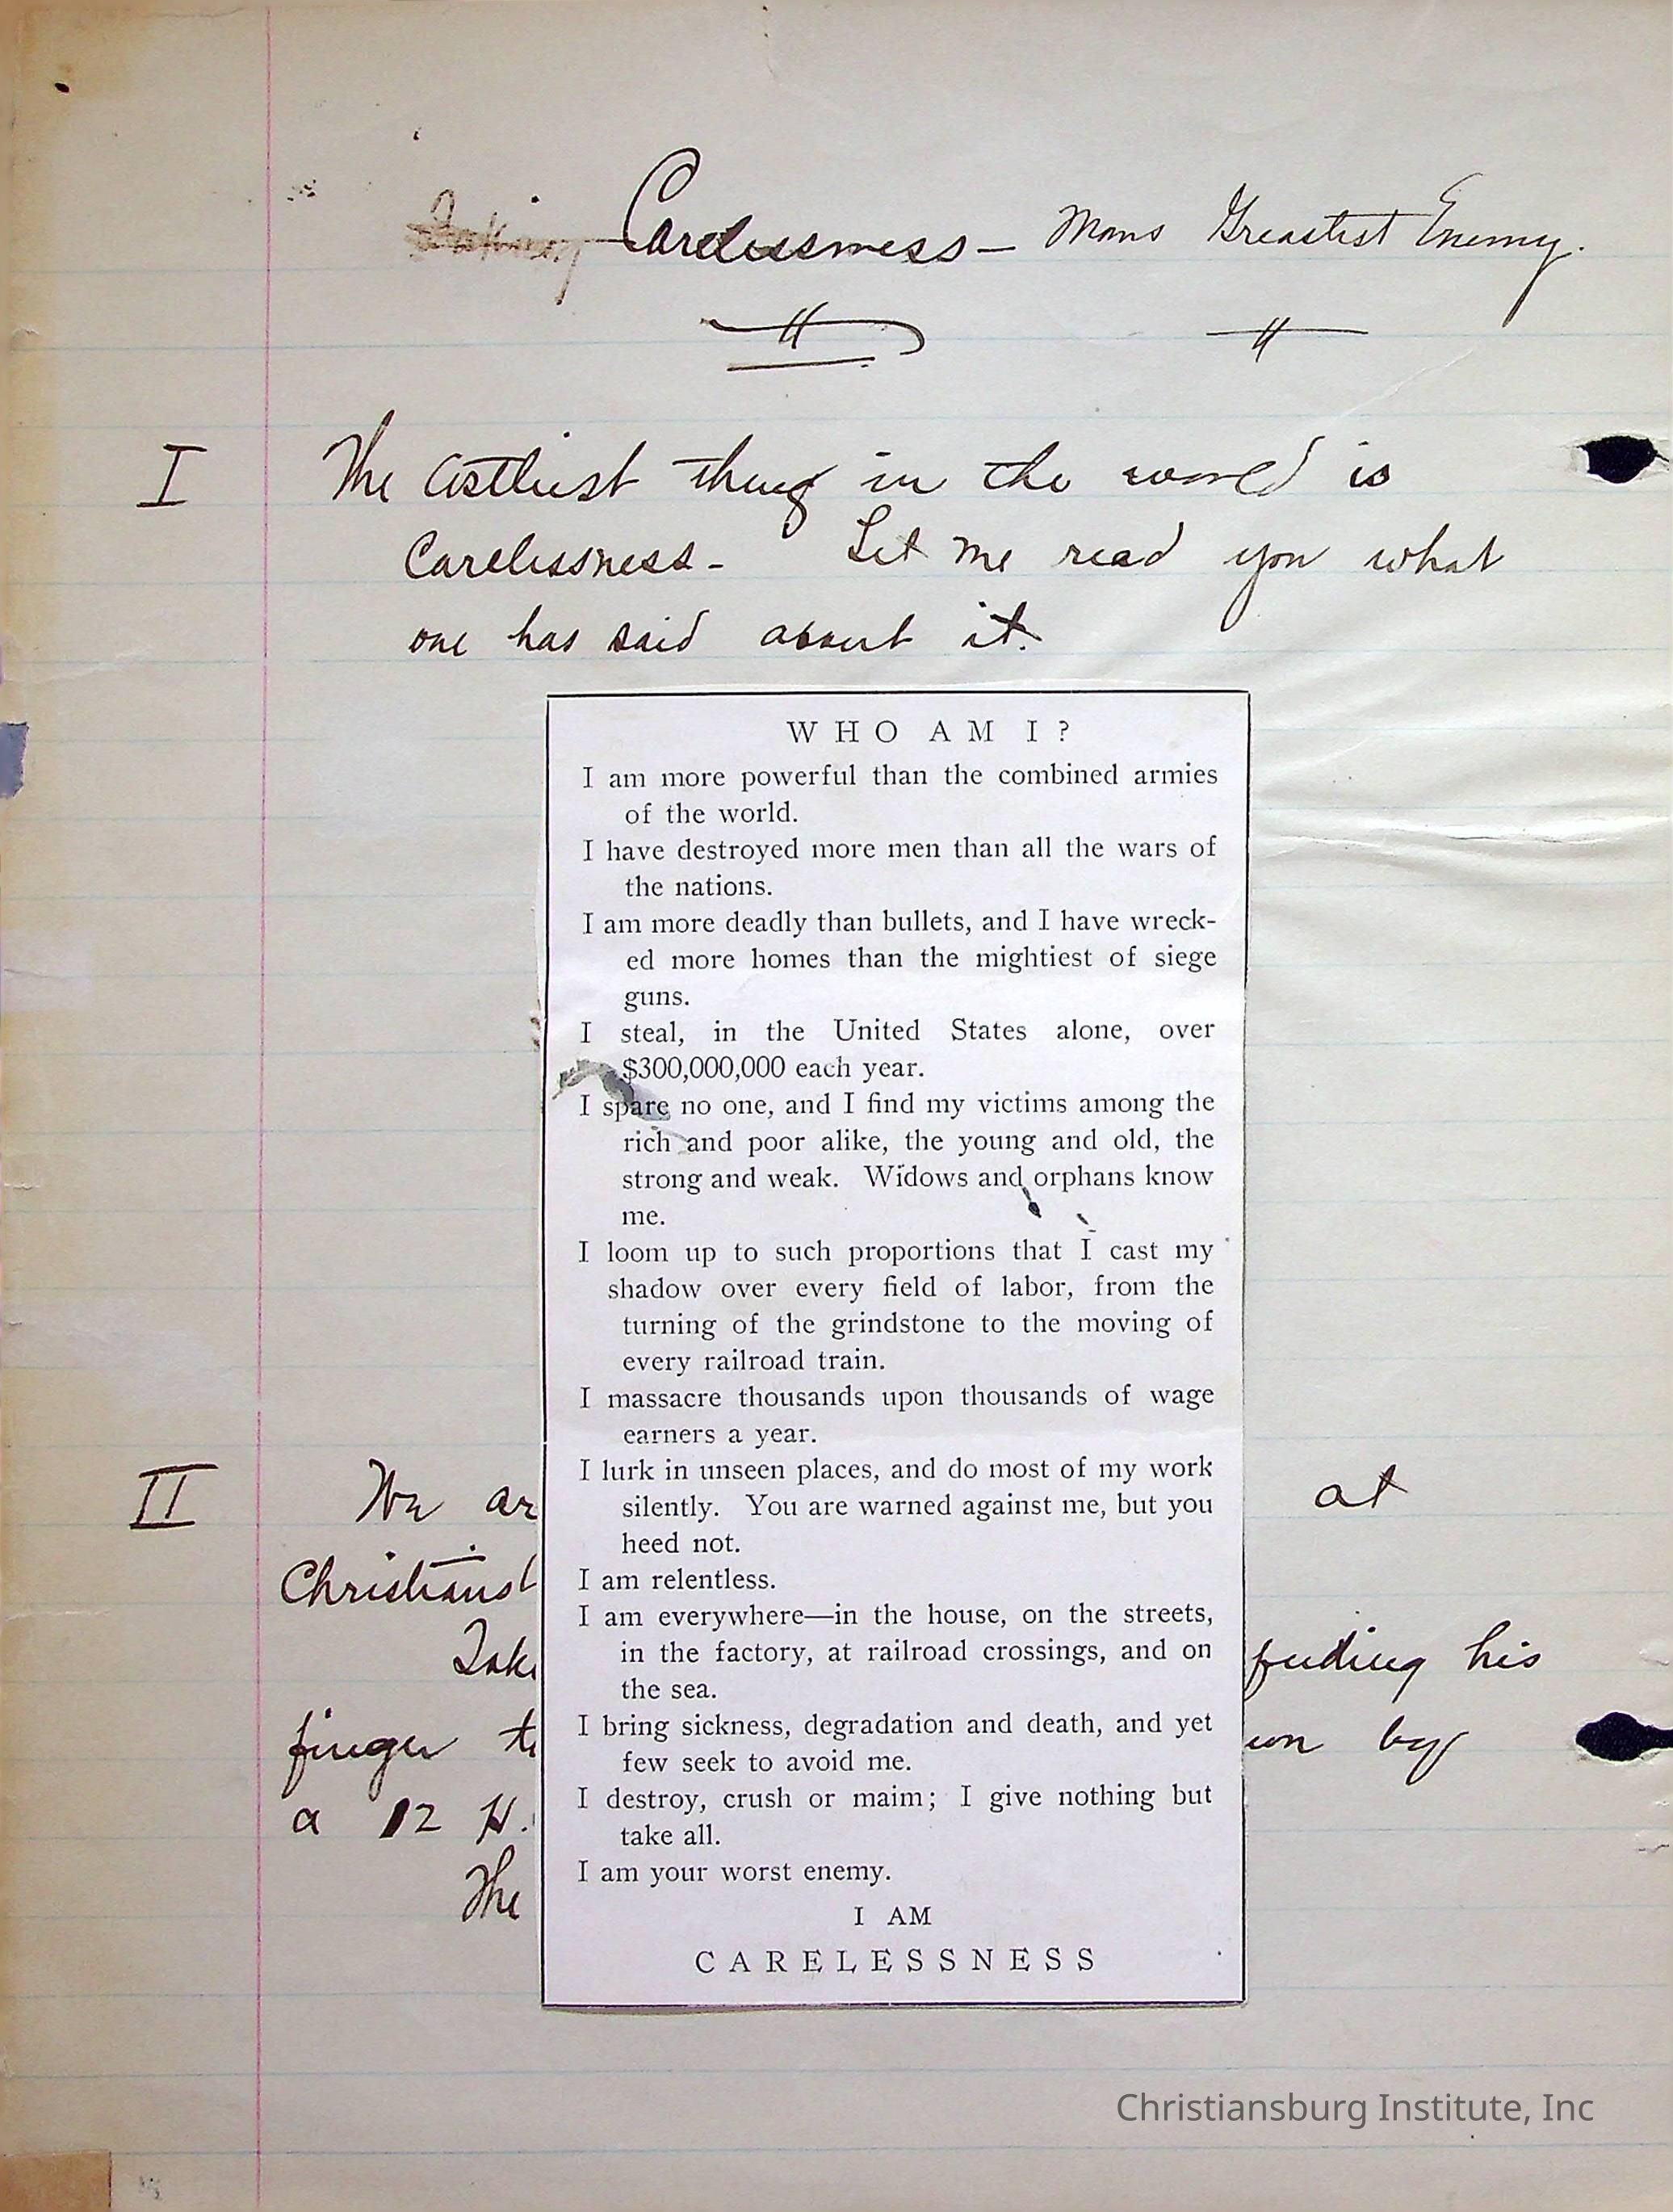 Carelessness — Mans Greatest Enemy.
I The Costliest thing in the world is
Carelessness - Let me read you what
one has said about it.
WHO AM I?
I am more powerful than the combined armies
of the world.
I have destroyed more men than all the wars of
the nations.
I am more deadly than bullets, and I have wreck-
ed more homes than the mightiest of siege
guns.
I steal, in the United States alone, over
$300,000,000 each year.
I spare no one, and I find my victims among the
rich and poor alike, the young and old, the
strong and weak. Widows and orphans know
me.
I loom up to such proportions that I cast my
shadow over every field of labor, from the
turning of the grindstone to the moving of
every railroad train.
I massacre thousands upon thousands of wage
earners a year.
I lurk in unseen places, and do most of my work
silently. You are warned against me, but you
heed not.
I am relentless.
I am everywhere—in the house, on the streets,
in the factory, at railroad crossings, and on
the sea.
I bring sickness, degradation and death, and yet
few seek to avoid me.
I destroy, crush or maim; I give nothing but
take all.
I am your worst enemy.
I AM
CARELESSNESS
II We at
his
finger by
a 12 H.
The
Christiansburg Institute, Inc